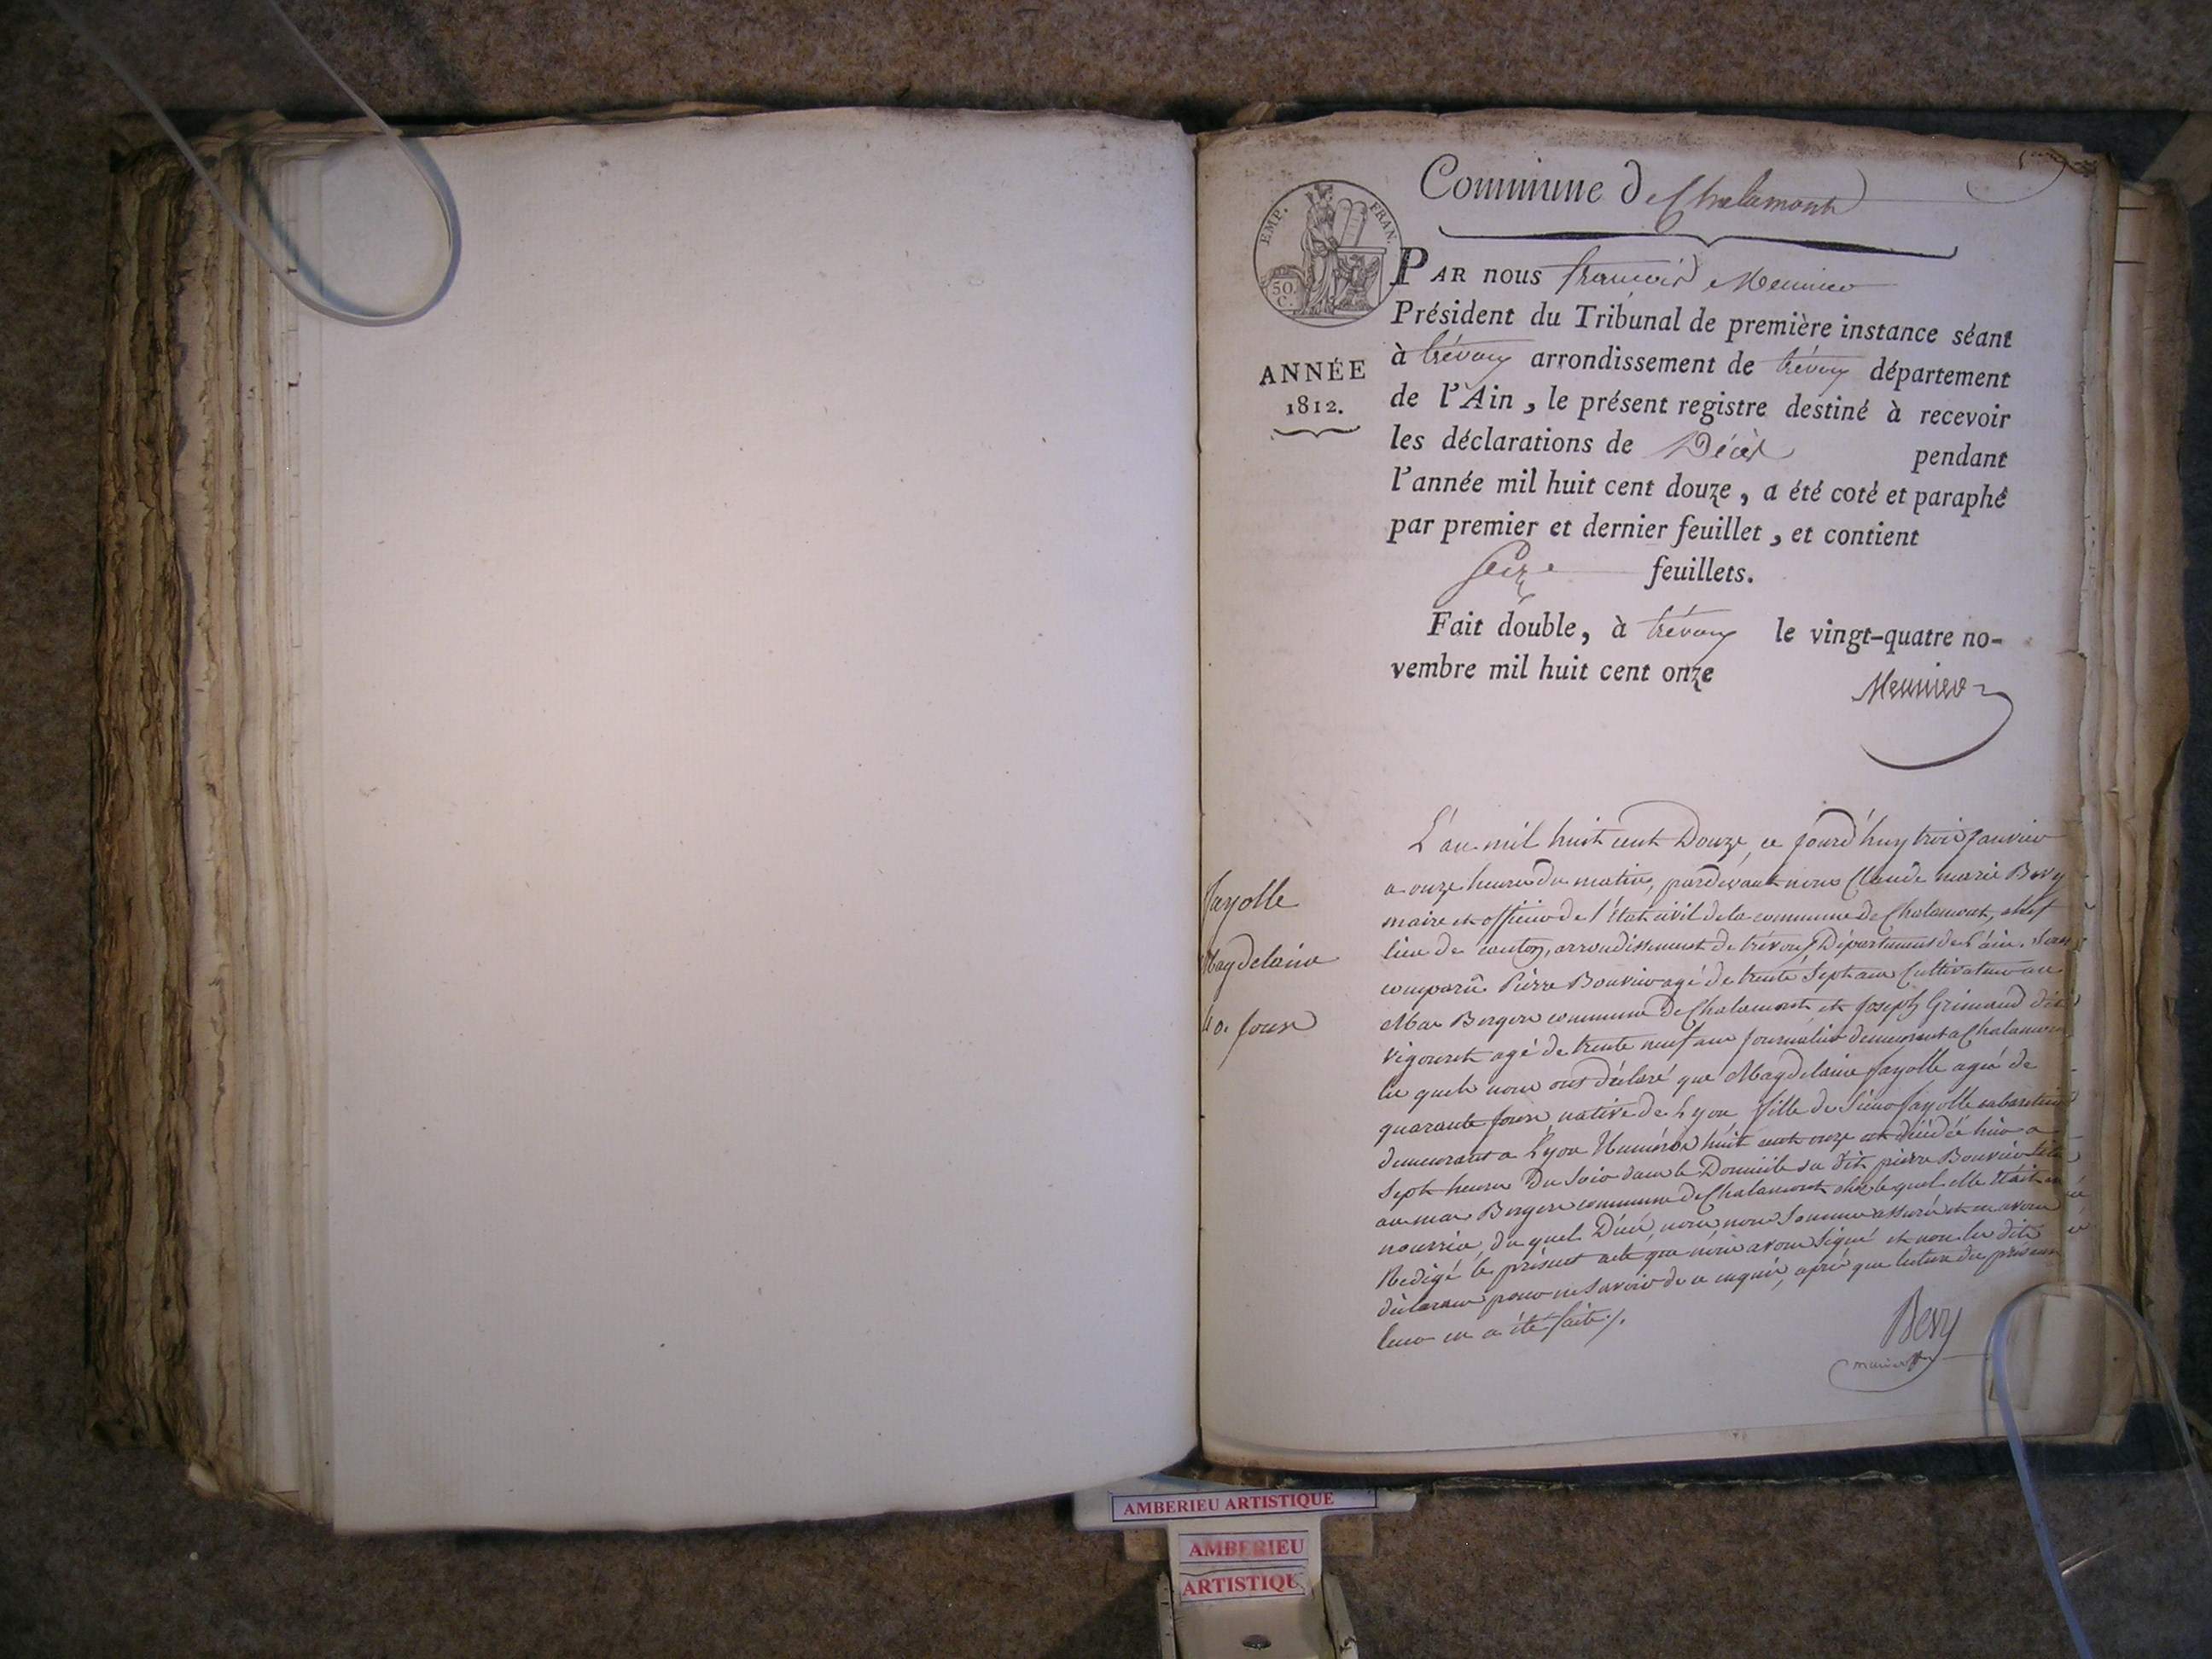 Commune de Chalamont
EMP. FRAN.
50. C.
PAR nous françois Meunier
Président du Tribunal de première instance séant
à trévoux arrondissement de trévoux département
ANNÉE
1812.
de l'Ain, le présent registre destiné à recevoir
les déclarations de Décès pendant
l'année mil huit cent douze, a été coté et paraphé
par premier et dernier feuillet, et contient
Seize feuillets.
Fait double, à trévoux le vingt-quatre no-
vembre mil huit cent onze
Meunier
fayolle
Magdelaine
40. jours
L'an mil huit cent Douze, ce jourd'huy trois janvier
a onze heures du matin, pardevant nous Claude marie Bevy
maire et officier de l'état civil de la commune de Chalamont, chef
lieu de canton, arrondissement de trévoux, Département de l'ain. Sont
comparû Pierre Bouvier agé de trente Sept ans Cultivateur au
Mas Bergere commune de Chalamont et joseph Grimaud dit
vigouret agé de trente neuf ans journalier demeurant a Chalamont
les quels nous ont déclaré que Magdelaine fayolle agée de
quarante jours, native de Lyon fille de fayolle cabaretier
demeurant a Lyon Numéro huit cent onze est décédée hier a
Sept heures Du Soir dans le Domicile du dit pierre Bouvier
au mas Bergere commune de Chalamont chez le quel elle était en
nourrice, du quel Décès, nous nous Sommes assuré et en avons
Redigé le présent acte que nous avons Signé et non les dits
déclarans pour ne Savoir de ce enquis, après que lecture du présent
leur en a été faite ./.
Bevy
maire
AMBERIEU ARTISTIQUE
AMBERIEU
ARTISTIQUE